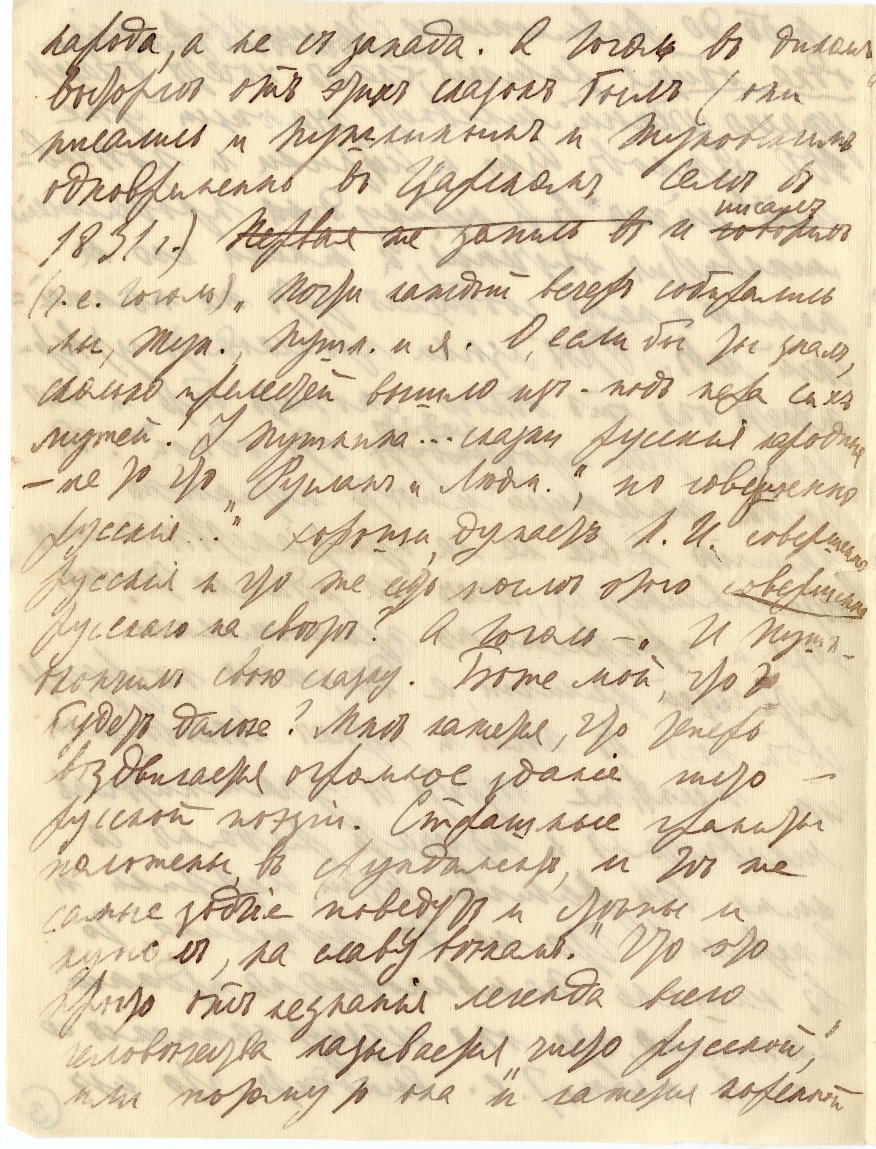 народа, а не съ запада. А Гоголь въ дикомъ
восторгѣ отъ этихъ сказокъ былъ (они
писались и Пушкинымъ и Жуковскимъ
одновременно въ Царскомъ Селѣ въ
1831 г.) Первая же запись въ и писалъ говоритъ
(т.е. Гоголь) „Почти каждый вечеръ собирались
мы, Жук., Пушк. и я. О, если бы ты зналъ,
сколько прелестей вышло изъ-подъ пера сихъ
мужей. У Пушкина... сказки русскія народныя
– не то что „Русланъ и Людм.", но совершенно
русскія..." хороши, думаетъ А. И. совершенно
русскія и что же есть послѣ этого совершенно
русскаго на свѣтѣ? А Гоголь –„ И Пушк-
окончилъ свою сказку. Боже мой, что то
будетъ далѣе? Мнѣ кажется, что теперь
воздвигается огромное зданіе чисто –
русской поэзіи. Страшные граниты
положены въ фундаментъ, и тѣ же
самые зодчіе поведутъ и стѣны и
куполъ, на славу вѣкамъ." Что это
просто отъ незнанія легенда всего
человѣчества называется чисто русской,
или потому то она и кажется коренной
3